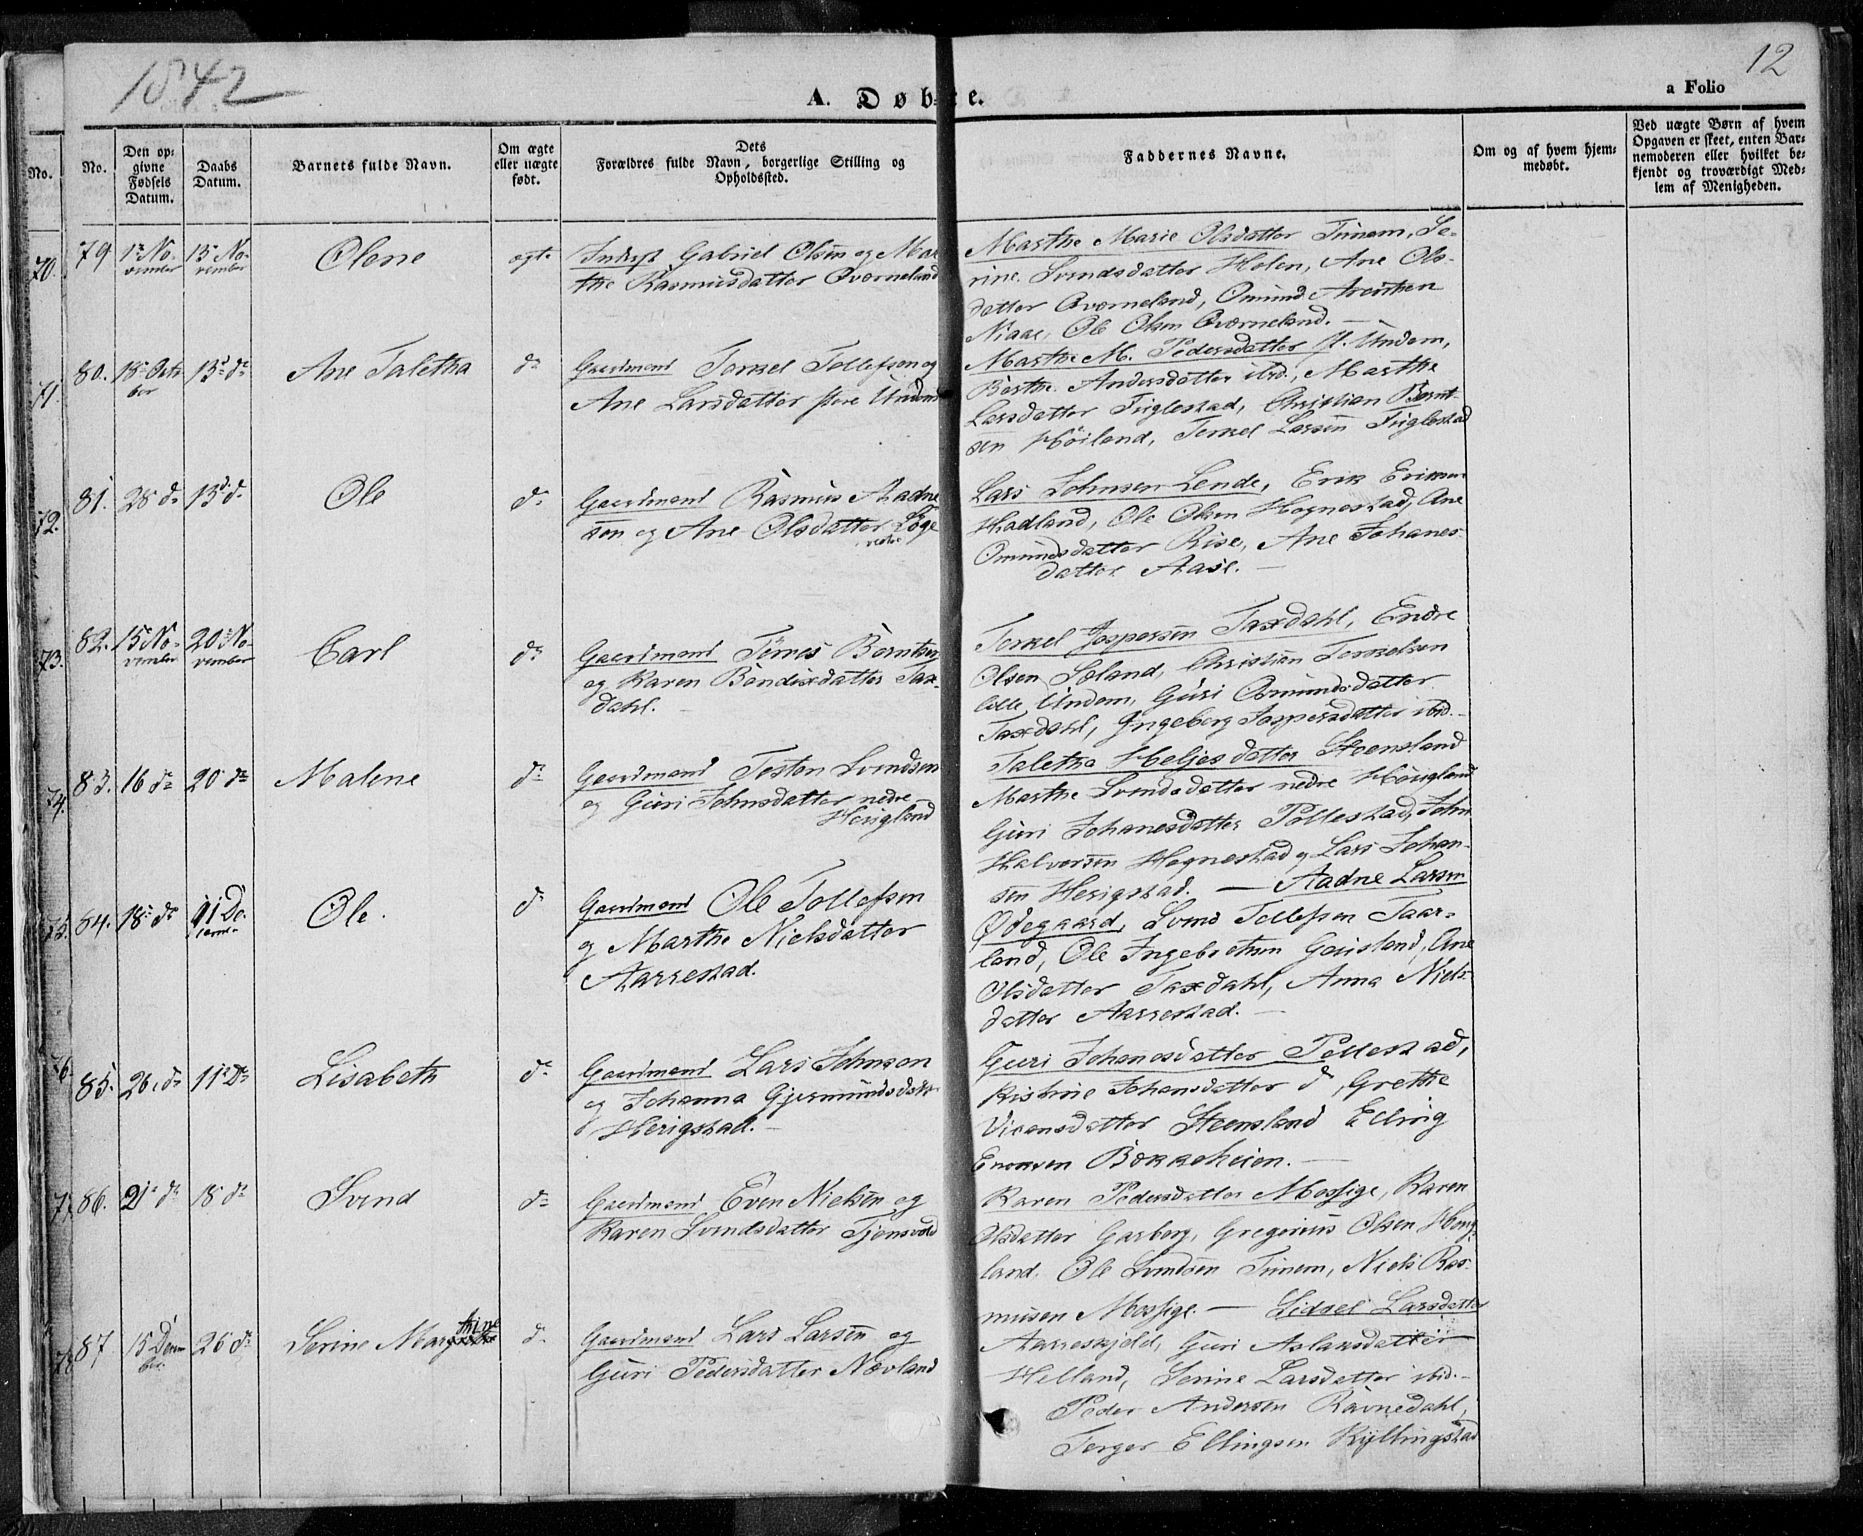 1842
12
A. Døbte.
a Folio
No.
No.
Den op=
givne
Fødsels
Datum.
Daabs
Datum.
Barnets fulde Navn.
Om ægte
eller uægte
født.
Dets
Forældres fulde Navn, borgerlige Stilling og
Opholdssted.
Faddernes Navne.
Om og af hvem hjem=
medøbt.
Ved uægte Børn af hvem
Opgaven er skeet, enten Bar=
nemoderen eller hvilket be=
kjendt og troværdigt Med=
lem af Menigheden.
70.
71.
72.
73.
74.
75.
76.
79
1ste No-
vember
13 No-
vember
Olene
egte
Inderst Gabriel Olsen og Mar
the Rasmusdatter Qværneland
Marthe Marie Olsdatter Timem, Se-
rine Svendsdatter Holen, Ane Ols-
datter Qværneland, Omund
Niaae, Ole Olsen Qværneland. —
80.
18 Octo
ber
13de do
Ane Taletha
do
Gaardmand Torkel Tollefsen og
Ane Larsdatter store Undem
Marthe M. Pedersdatter st. Undem,
Berthe Andersdatter ibid., Marthe
Larsdatter Fuglestad, Christian Bernt-
sen Høiland, Torkel Larsen Fuglestad
81.
28 do
13d do
Ole
do
Gaardmand Rasmus Aadne
sen og Ane Olsdatter Løge
vestre
Lars Johnsen Lende, Erik Eriksen
Hadland, Ole Olsen Hognestad, Ane
Omundsdatter Rise, Ane Johanes-
datter Aase. —
82.
15 No-
vember
20 No-
vember
Carl
do
Gaardmand Tønnes Berntsen
og Karen Bendixdatter Tax-
dahl.
Torkel Jaspersen Taxdahl, Endre
Olsen Sæland, Christian Torkelsen
lille Undem, Guri Omundsdatter
Taxdahl, Ingeborg Jaspersdatter ibid.
83.
16 do
20 do
Malene
do
Gaardmand Tosten Svendsen
og Guri Johnsdatter nedre
Høigland
Taletha Heljesdatter Steensland
Marthe Svendsdatter nedre Høigland
Guri Johanesdatter Pollestad, John
Halvorsen Hognestad og Lars Johan-
sen Herigstad. — Aadne Larsen
84.
18 do
11 De-
cember
Ole.
do
Gaardmand Ole Tollefsen
og Marthe Nielsdatter
Aarrestad.
Ødegaard, Svend Tollefsen Taar-
land, Ole Ingebretsen Gausland, Ane
Olsdatter Taxdahl, Anna Niels-
datter Aarrestad. —
85.
26. do
11 do
Lisabeth
do
Gaardmand Lars Johnson
og Johanna Gjermundsdatter
Herigstad. —
Guri Johanesdatter Pollestad,
Kistine Johansdatter do, Grethe
Steensland Elling
Enoksen Bokkeheien. —
86.
21 do
18 do
Svend
do
Gaardmand Even Nielsen og
Karen Svendsdatter Tjensvold
Karen Pedersdatter Mossige, Karen
Olsdatter Garborg, Gregorius Olsen Høig-
land, Ole Svendsen Timem, Niels Ras-
musen Mossige. — Sidsel Larsdatter
87
15 Decem
ber
26 do
Serine Margthine
d.
Gaardmand Lars Larsen og
Guri Pedersdatter Nævland
Aarreskjold, Guri Aslaksdatter
Helland, Serine Larsdatter ibid. —
Peder Andersen Ravnedahl,
Torger Ellingsen Kyllingstad